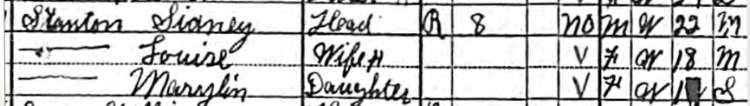 Stanton Sidney Head R 8 NO M W 22 M
— Louise Wife H V F W 18 M
— Marylin Daughter V F W S